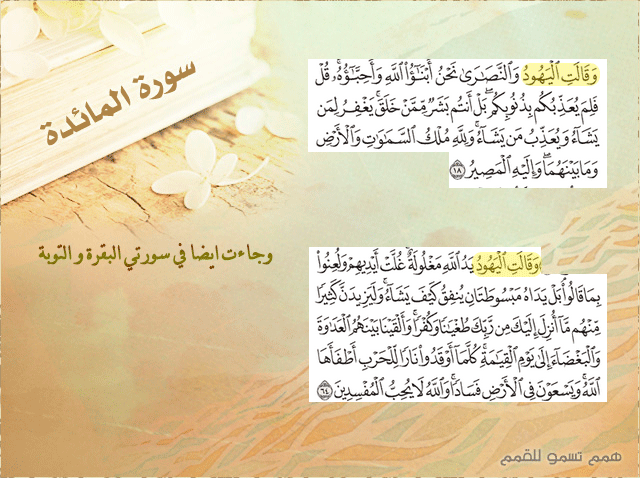 سورة المائدة
وَقَالَتِ الْيَهُودُ وَالنَّصَارَىٰ نَحْنُ أَبْنَاؤُا اللَّهِ وَأَحِبَّاؤُهُ قُلْ
فَلِمَ يُعَذِّبُكُم بِذُنُوبِكُم بَلْ أَنتُم بَشَرٌ مِّمَّنْ خَلَقَ يَغْفِرُ لِمَن
يَشَاءُ وَيُعَذِّبُ مَن يَشَاءُ وَلِلَّهِ مُلْكُ السَّمَاوَاتِ وَالْأَرْضِ
وَمَا بَيْنَهُمَا وَإِلَيْهِ الْمَصِيرُ ١٨
وجاءت ايضا في سورتي البقرة و التوبة
وَقَالَتِ الْيَهُودُ يَدُ اللَّهِ مَغْلُولَةٌ غُلَّتْ أَيْدِيهِمْ وَلُعِنُوا
بِمَا قَالُوا بَلْ يَدَاهُ مَبْسُوطَتَانِ يُنفِقُ كَيْفَ يَشَاءُ وَلَيَزِيدَنَّ كَثِيرًا
مِّنْهُم مَّا أُنزِلَ إِلَيْكَ مِن رَّبِّكَ طُغْيَانًا وَكُفْرًا وَأَلْقَيْنَا بَيْنَهُمُ الْعَدَاوَةَ
وَالْبَغْضَاءَ إِلَىٰ يَوْمِ الْقِيَامَةِ كُلَّمَا أَوْقَدُوا نَارًا لِّلْحَرْبِ أَطْفَأَهَا
اللَّهُ وَيَسْعَوْنَ فِي الْأَرْضِ فَسَادًا وَاللَّهُ لَا يُحِبُّ الْمُفْسِدِينَ ٦٤
همم تسمو للقمم